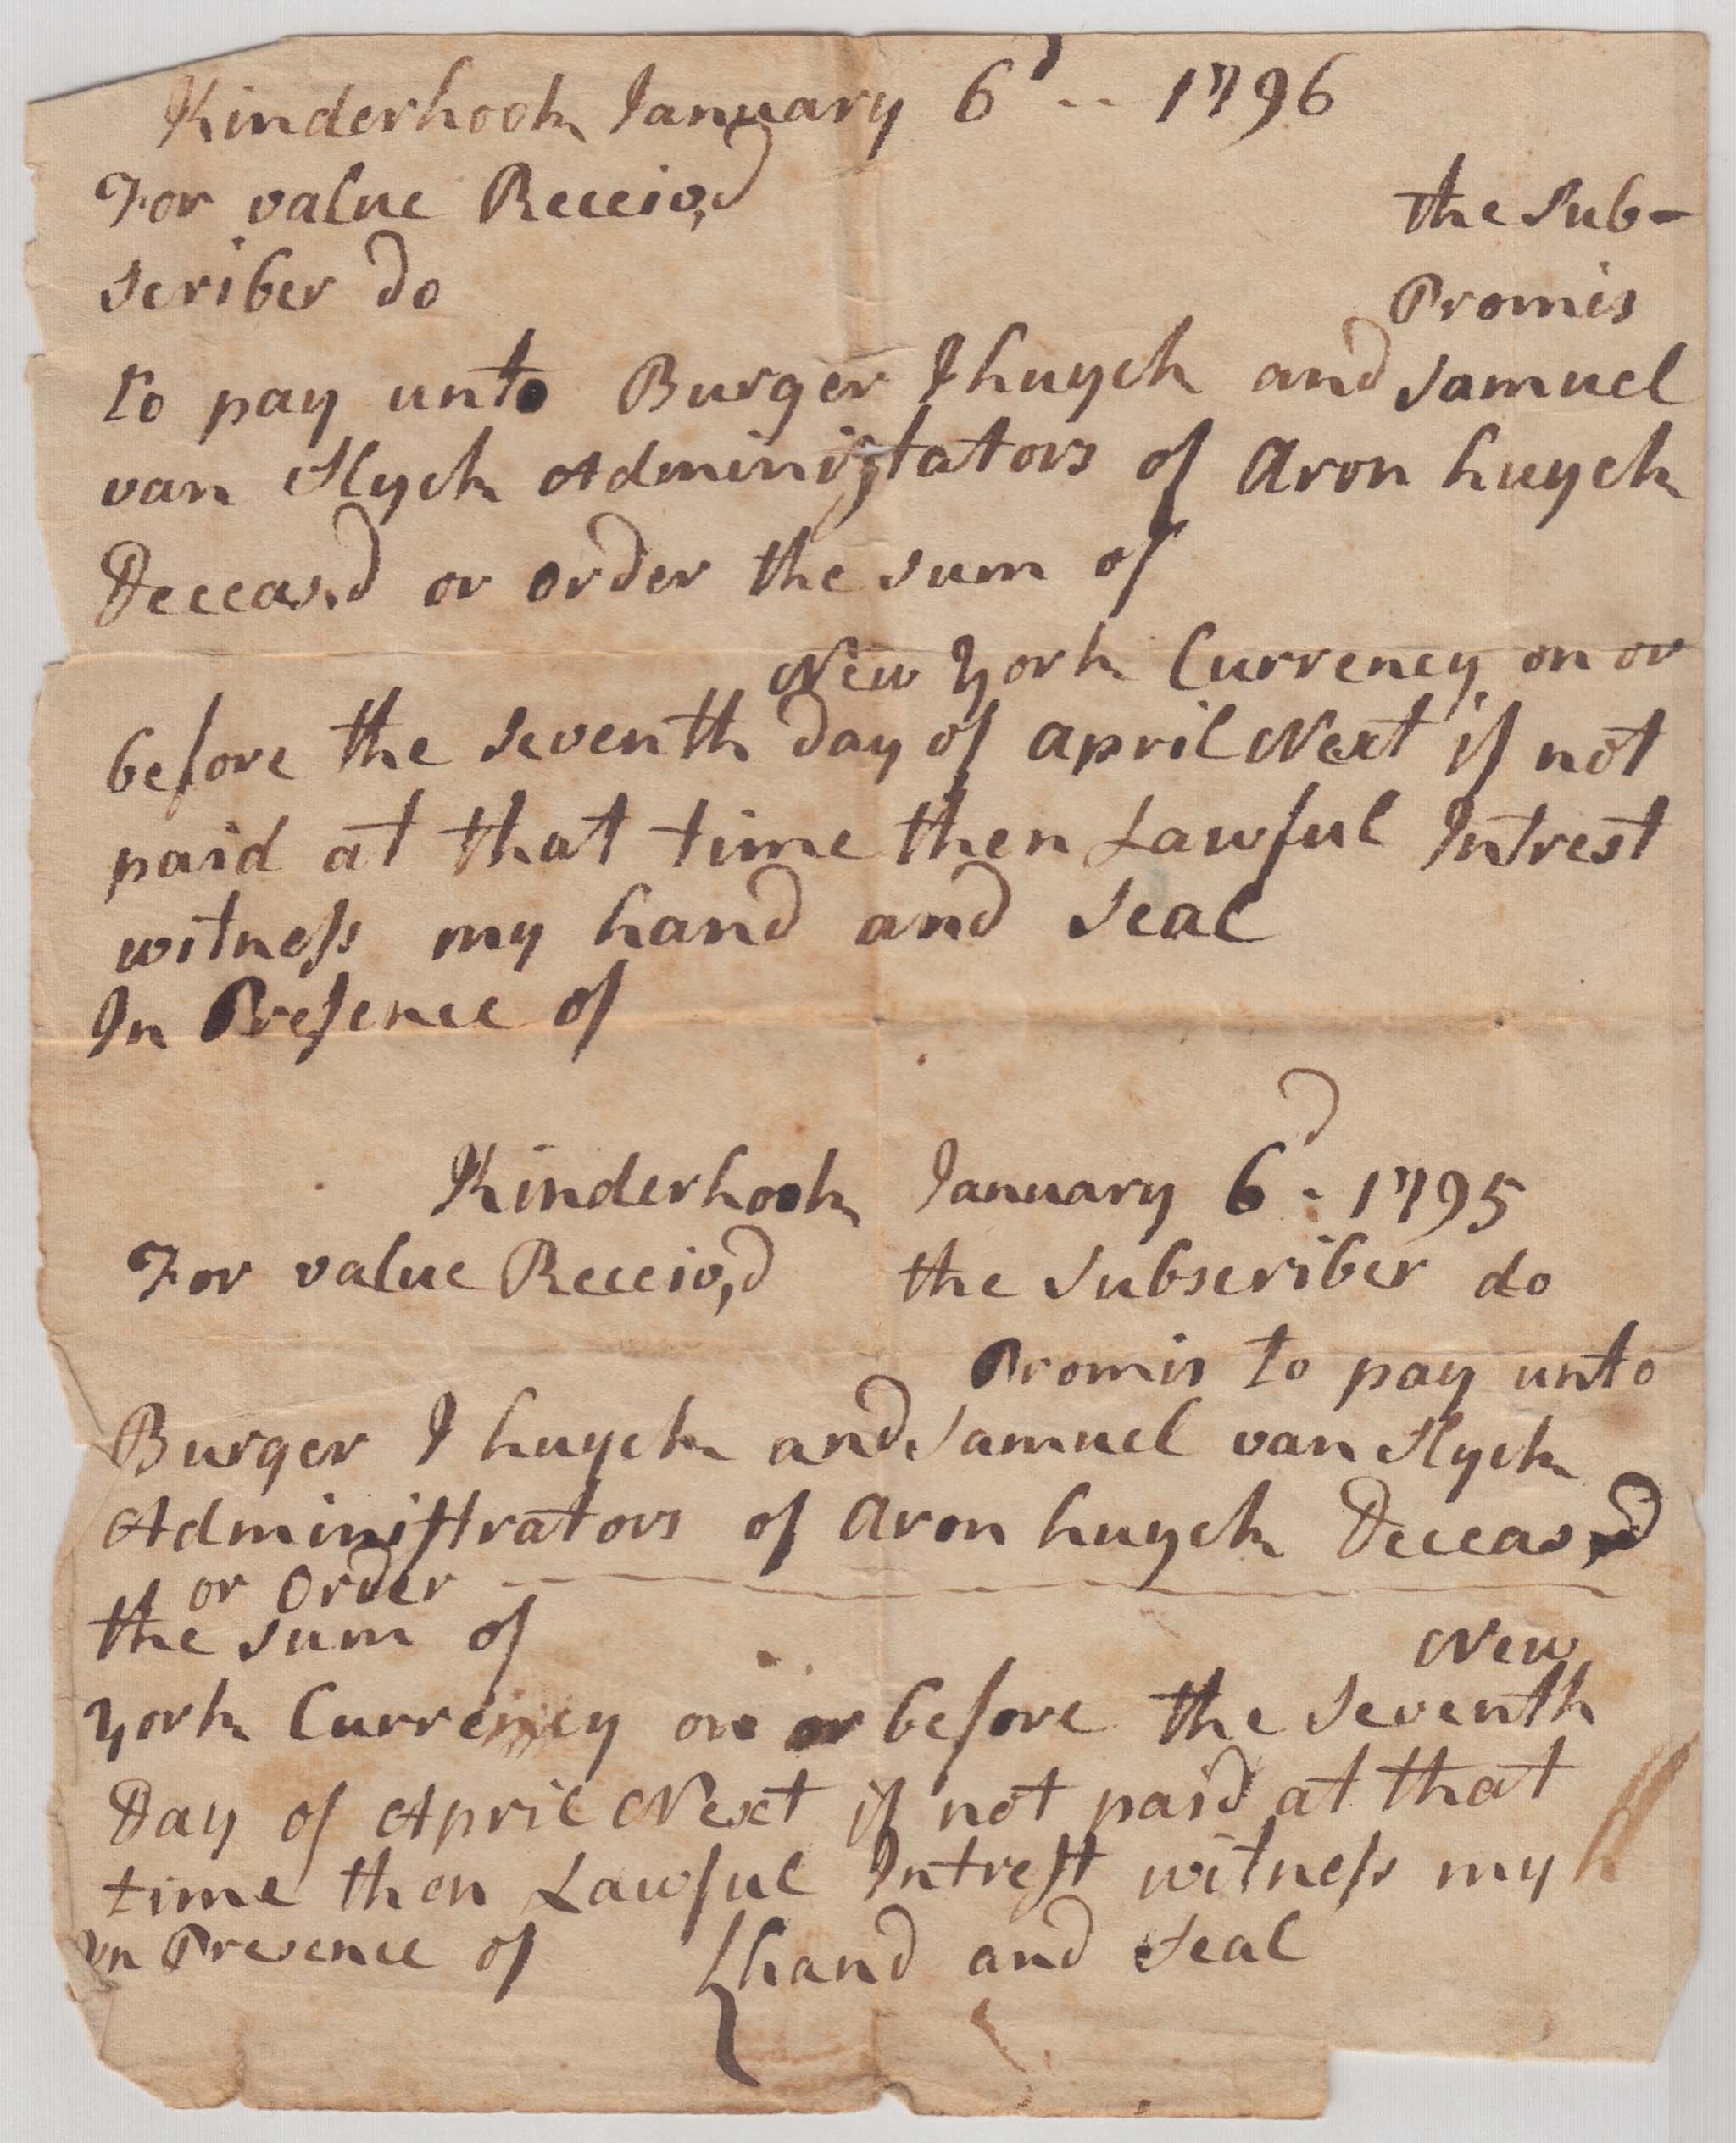 Kinderhook January 6d -- 1796
For value Receiv,d the Sub-
scriber do Promis
to pay unto Burger I huyck and Samuel
van Slyck Administators of Aron huyck
Deceas,d or order the sum of
New York Currency on or
before the seventh day of april Next if not
paid at that time then Lawful Intrest
witness my hand and seal
In Presence of
Kinderhook January 6d - 1795
For value Receiv,d the Subscriber do
Promis to pay unto
Burger I huyck and Samuel van Slyck
Administrators of Aron huyck Deceas,d
or Order
the sum of New
York Currency on or before the Seventh
Day of April Next if not paid at that
time then Lawful Intrest witness my
in Presence of { hand and Seal